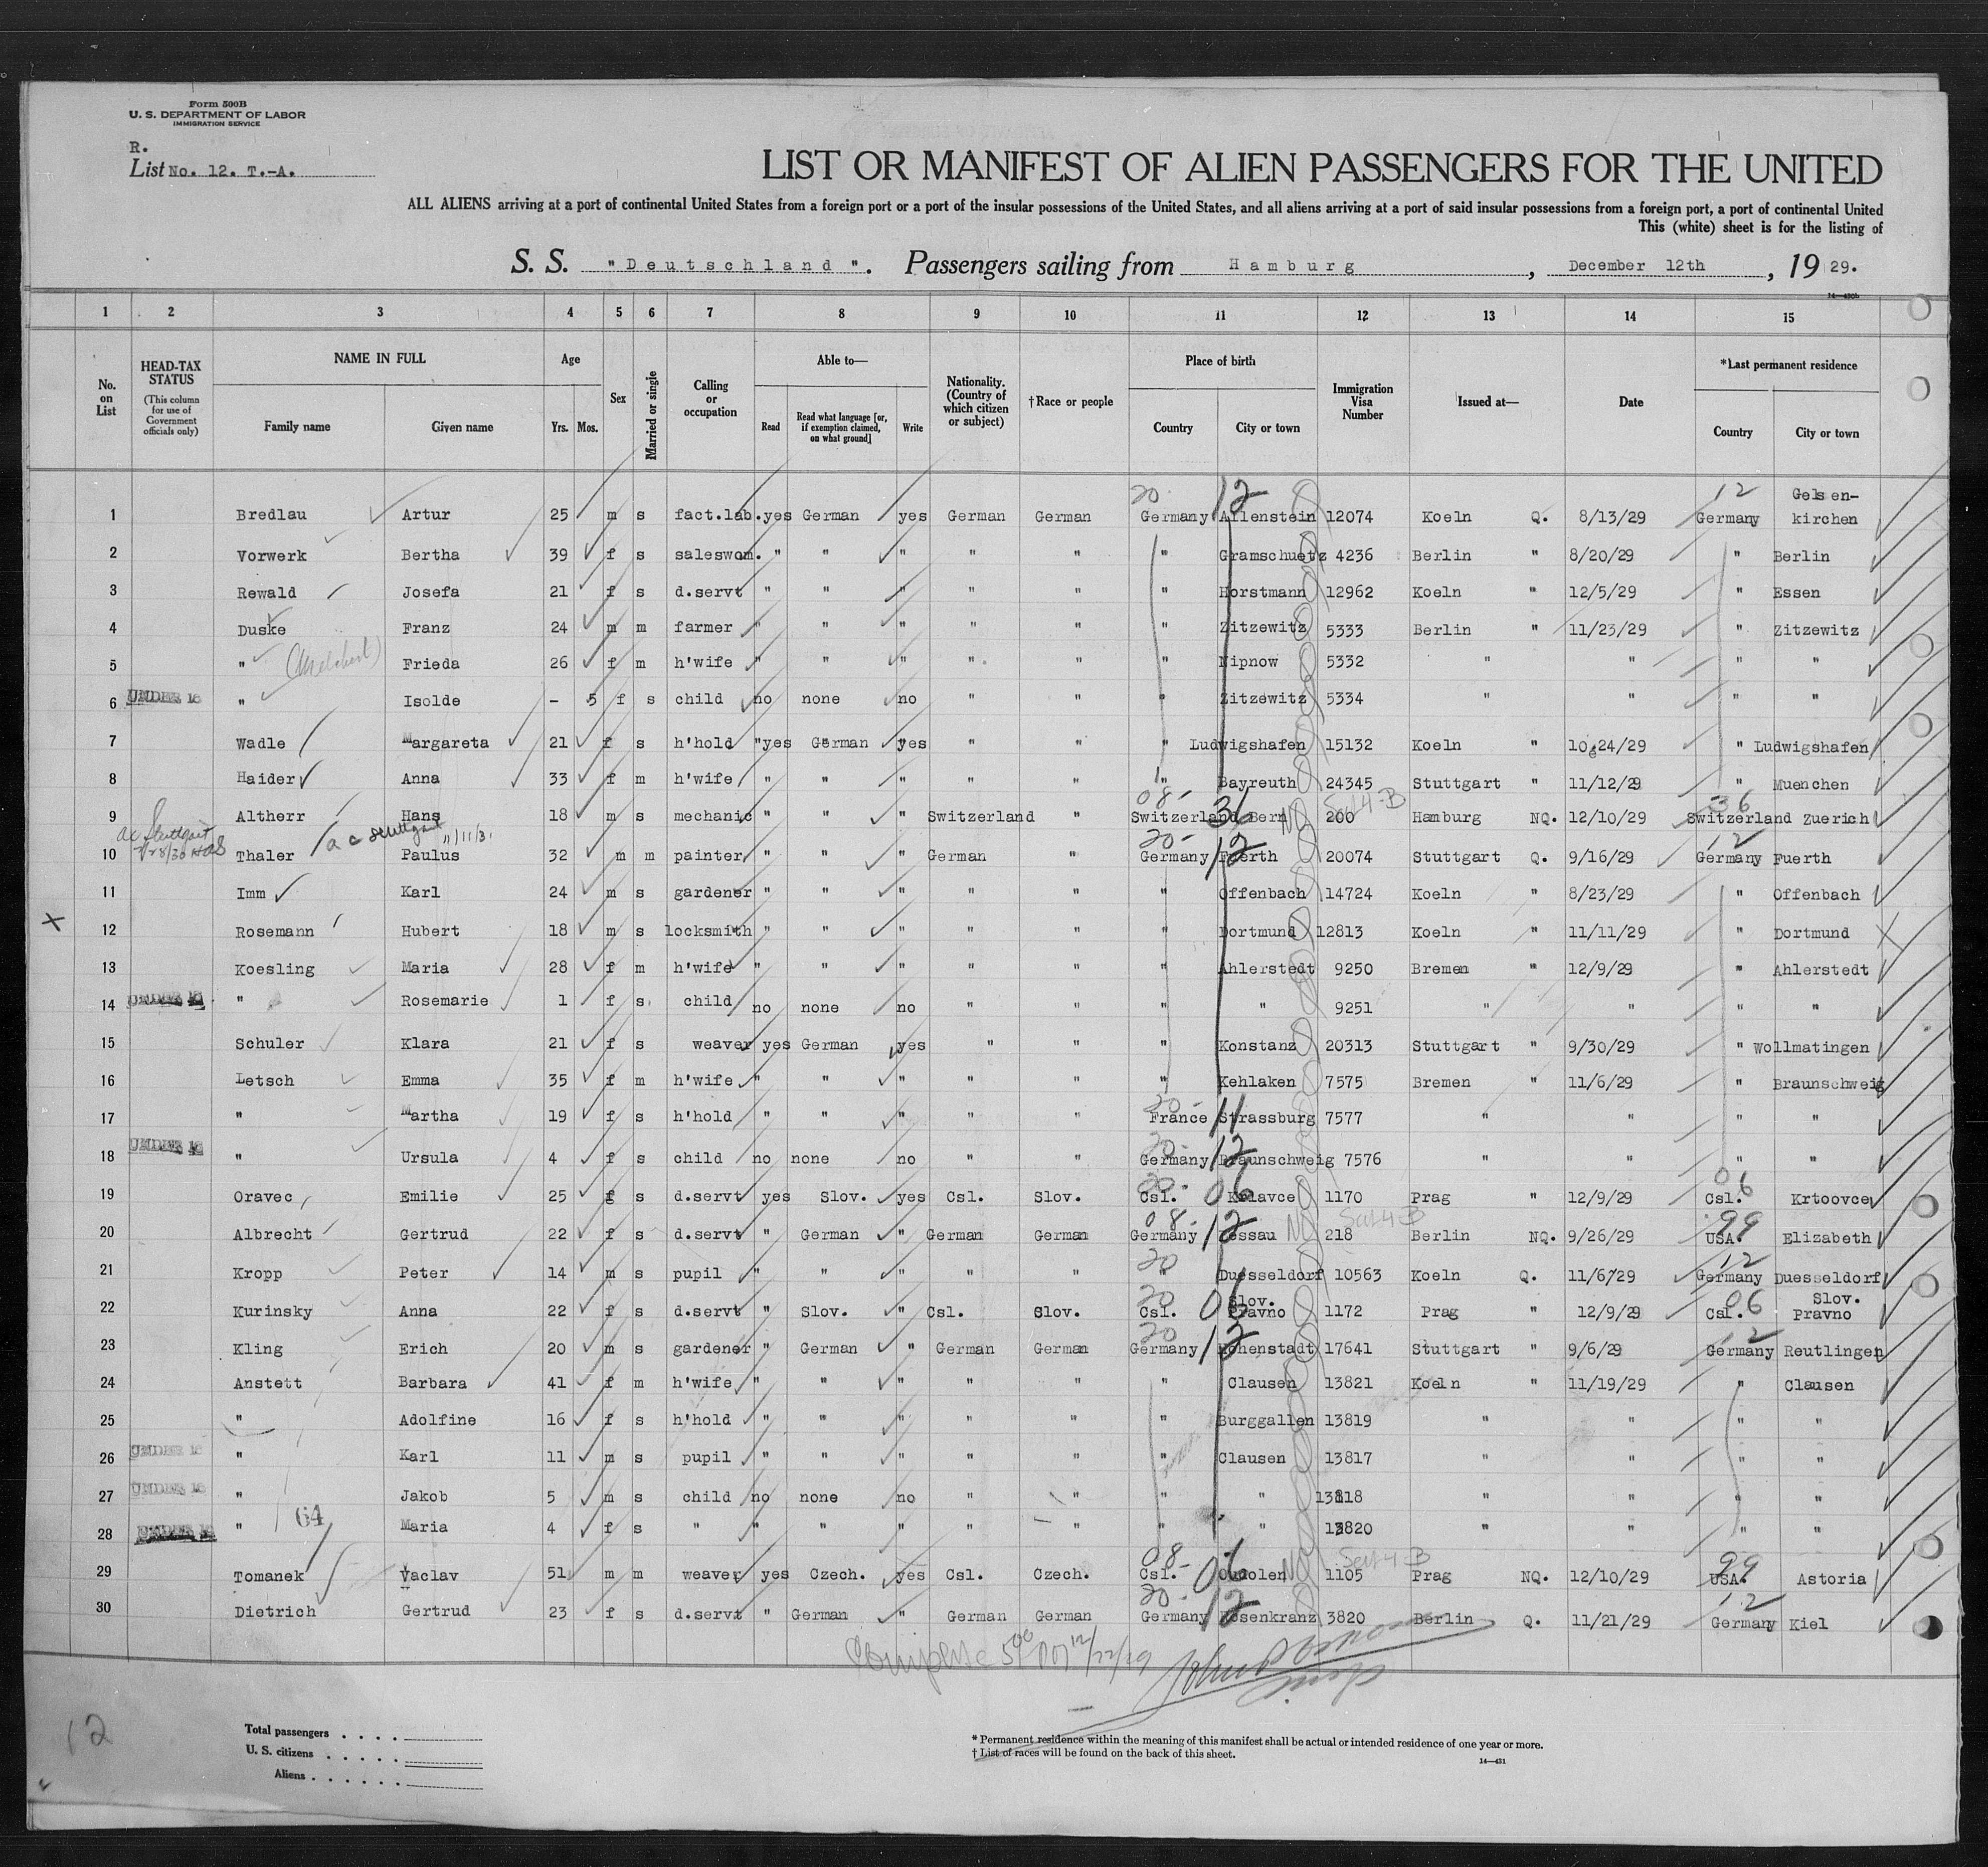 Form 500B
U. S. DEPARTMENT OF LABOR
IMMIGRATION SERVICE
R.
List No. 12. T.-A.
LIST OR MANIFEST OF ALIEN PASSENGERS FOR THE UNITED
ALL ALIENS arriving at a port of continental United States from a foreign port or a port of the insular possessions of the United States, and all aliens arriving at a port of said insular possessions from a foreign port, a port of continental United
This (white) sheet is for the listing of
S. S. "Deutschland". Passengers sailing from Hamburg, December 12th, 19 29.
14—430b
1 2 3 4 5 6 7 8 9 10 11 12 13 14 15
No. on List
HEAD-TAX STATUS (This column for use of Government officials only)
NAME IN FULL Family name Given name
Age Yrs. Mos.
Sex
Married or single
Calling or occupation
Able to— Read Read what language [or, if exemption claimed, on what ground] Write
Nationality. (Country of which citizen or subject)
†Race or people
Place of birth Country City or town
Immigration Visa Number
Issued at—
Date
*Last permanent residence Country City or town
20 12 12 Gelsen-
1 Bredlau Artur 25 m s fact.lab. yes German yes German German Germany Allenstein 12074 Koeln Q. 8/13/29 Germany kirchen
2 Vorwerk Bertha 39 f s saleswom. " " " " " " Gramschuetz 4236 Berlin " 8/20/29 " Berlin
3 Rewald Josefa 21 f s d.servt " " " " " " Horstmann 12962 Koeln " 12/5/29 " Essen
4 Duske Franz 24 m m farmer " " " " " " Zitzewitz 5333 Berlin " 11/23/29 " Zitzewitz
5 " Frieda 26 f m h'wife " " " " " " Nipnow 5332 " " " "
6 UNDER 16 " Isolde - 5 f s child no none no " " " Zitzewitz 5334 " " " "
7 Wadle Margareta 21 f s h'hold "yes German yes " " " Ludwigshafen 15132 Koeln " 10.24/29 " Ludwigshafen
8 Haider Anna 33 f m h'wife " " " " " " Bayreuth 24345 Stuttgart " 11/12/29 " Muenchen
08- 36 No Sect 4-B 36
9 Altherr Hans 18 m s mechanic " " " Switzerland " Switzerland Bern 200 Hamburg NQ. 12/10/29 Switzerland Zuerich
ac Stuttgart
a c Stuttgart 11/11/31
20- 12 12
10 Thaler Paulus 32 m m painter " " " German " Germany Fuerth 20074 Stuttgart Q. 9/16/29 Germany Fuerth
11 Imm Karl 24 m s gardener " " " " " " Offenbach 14724 Koeln " 8/23/29 " Offenbach
X 12 Rosemann Hubert 18 m s locksmith " " " " " " Dortmund 12813 Koeln " 11/11/29 " Dortmund
13 Koesling Maria 28 f m h'wife " " " " " " Ahlerstedt 9250 Bremen " 12/9/29 " Ahlerstedt
14 UNDER 16 " Rosemarie 1 f s child no none no " " " " 9251 " " " "
15 Schuler Klara 21 f s weaver yes German yes " " " Konstanz 20313 Stuttgart " 9/30/29 " Wollmatingen
16 Letsch Emma 35 f m h'wife " " " " " " Kehlaken 7575 Bremen " 11/6/29 " Braunschweig
20- 11
17 " Martha 19 f s h'hold " " " " " France Strassburg 7577 " " " "
20- 12
18 UNDER 16 " Ursula 4 f s child no none no " " Germany Braunschweig 7576 " " " "
20- 06 06
19 Oravec Emilie 25 f s d.servt yes Slov. yes Csl. Slov. Csl. 1170 Prag " 12/9/29 Csl. Krtoovce
08- 12 No Sect 4 B 99
20 Albrecht Gertrud 22 f s d.servt " German " German German Germany Dessau 218 Berlin NQ. 9/26/29 USA. Elizabeth
20 12
21 Kropp Peter 14 m s pupil " " " " " " Duesseldorf 10563 Koeln Q. 11/6/29 Germany Duesseldorf
20 06 Slov. 06 Slov.
22 Kurinsky Anna 22 f s d.servt " Slov. " Csl. Slov. Csl. Pravno 1172 Prag " 12/9/29 Csl. Pravno
20 12 12
23 Kling Erich 20 m s gardener " German " German German Germany Hohenstadt 17641 Stuttgart " 9/6/29 Germany Reutlingen
24 Anstett Barbara 41 f m h'wife " " " " " " Clausen 13821 Koeln " 11/19/29 " Clausen
25 " Adolfine 16 f s h'hold " " " " " " Burggallen 13819 " " " "
26 UNDER 16 " Karl 11 m s pupil " " " " " " Clausen 13817 " " " "
27 UNDER 16 " Jakob 5 m s child no none no " " " " 13818 " " " "
28 UNDER 16 " 64 Maria 4 f s " " " " " " " " 13820 " " " "
08- 06 No Sect 4 B 99
29 Tomanek Vaclav 51 m m weaver yes Czech. yes Csl. Czech. Csl. 1105 Prag NQ. 12/10/29 USA. Astoria
20- 12 12
30 Dietrich Gertrud 23 f s d.servt " German " German German Germany Rosenkranz 3820 Berlin Q. 11/21/29 Germany Kiel
Complete 5 00 PM 12/22/29
12
Total passengers
U. S. citizens
Aliens
* Permanent residence within the meaning of this manifest shall be actual or intended residence of one year or more.
† List of races will be found on the back of this sheet.
14—431